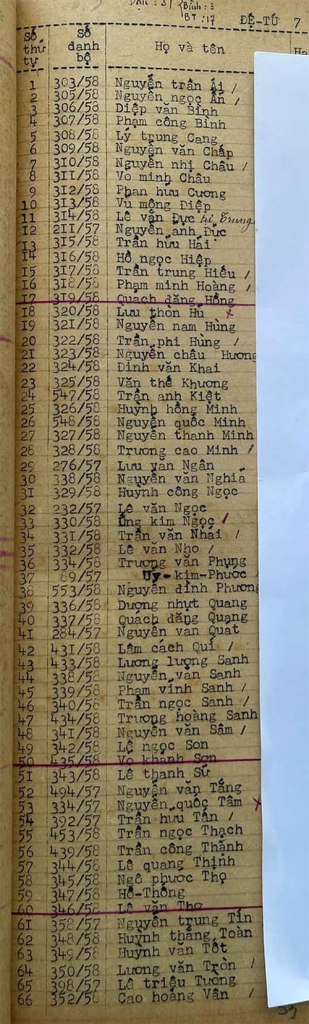 Bình : 3
BT : 17
ĐỆ-TỨ 7
Số thứ tự Số danh bộ Họ và tên
1 303/58 Nguyễn trần Ái /
2 305/58 Nguyễn ngọc Ẩn /
3 306/58 Diệp văn Bình
4 307/58 Phạm công Bình
5 308/58 Lý trung Cang
6 309/58 Nguyễn văn Chấp
7 310/58 Nguyễn nhị Châu /
8 311/58 Võ minh Châu
9 312/58 Phan hữu Cương
10 313/58 Vũ mộng Điệp
11 314/58 Lê văn Dục
12 211/57 Nguyễn anh Đức
13 315/58 Trần hữu Hải
14 316/58 Hồ ngọc Hiệp
15 317/58 Trần trung Hiếu /
16 318/58 Phạm minh Hoàng /
17 319/58 Quách đăng Hồng
18 320/58 Lưu thòn Hù x
19 321/58 Nguyễn nam Hùng
20 322/58 Trần phi Hùng /
21 323/58 Nguyễn châu Hương
22 324/58 Đinh văn Khai
23 325/58 Văn thế Khương
24 547/58 Trần anh Kiệt
25 326/58 Huỳnh hồng Minh
26 548/58 Nguyễn quốc Minh
27 327/58 Nguyễn thanh Minh
28 328/58 Trương cao Minh /
29 276/57 Lưu văn Ngân
30 338/58 Nguyễn văn Nghiã
31 329/58 Huỳnh công Ngọc
32 232/57 Lê văn Ngọc
33 330/58 Ủng kim Ngọc /
34 331/58 Trần văn Nhai /
35 332/58 Lê văn Nho /
36 334/58 Trương văn Phụng
37 89/57 Uy-kim-Phước /
38 553/58 Nguyễn đình Phương
39 336/58 Dương nhựt Quang
40 337/58 Quách đăng Quang
41 284/57 Nguyễn văn Quát
42 431/58 Lâm cách Quí /
43 433/58 Lương lượng Sanh
44 338/58 Nguyễn văn Sanh
45 339/58 Phạm vĩnh Sanh /
46 340/58 Trần ngọc Sanh /
47 434/58 Trương hoàng Sanh
48 341/58 Nguyễn văn Sâm /
49 342/58 Lê ngọc Son
50 435/58 Võ khánh Sơn
51 343/58 Lê thanh Sử
52 494/57 Nguyễn văn Tăng
53 334/57 Nguyễn quốc Tâm x
54 392/57 Trần hữu Tân /
55 453/58 Trần ngọc Thạch
56 439/58 Trần công Thành
57 344/58 Lê quang Thịnh
58 345/58 Ngô phước Thọ
59 347/58 Hồ-Thông
60 346/58 Lê văn Thơ
61 358/57 Nguyễn trung Tín
62 348/58 Huỳnh thắng Toàn
63 349/58 Huỳnh văn Tốt
64 350/58 Lương văn Tròn /
65 398/57 Lê triệu Tường
66 352/58 Cao hoàng Vân /